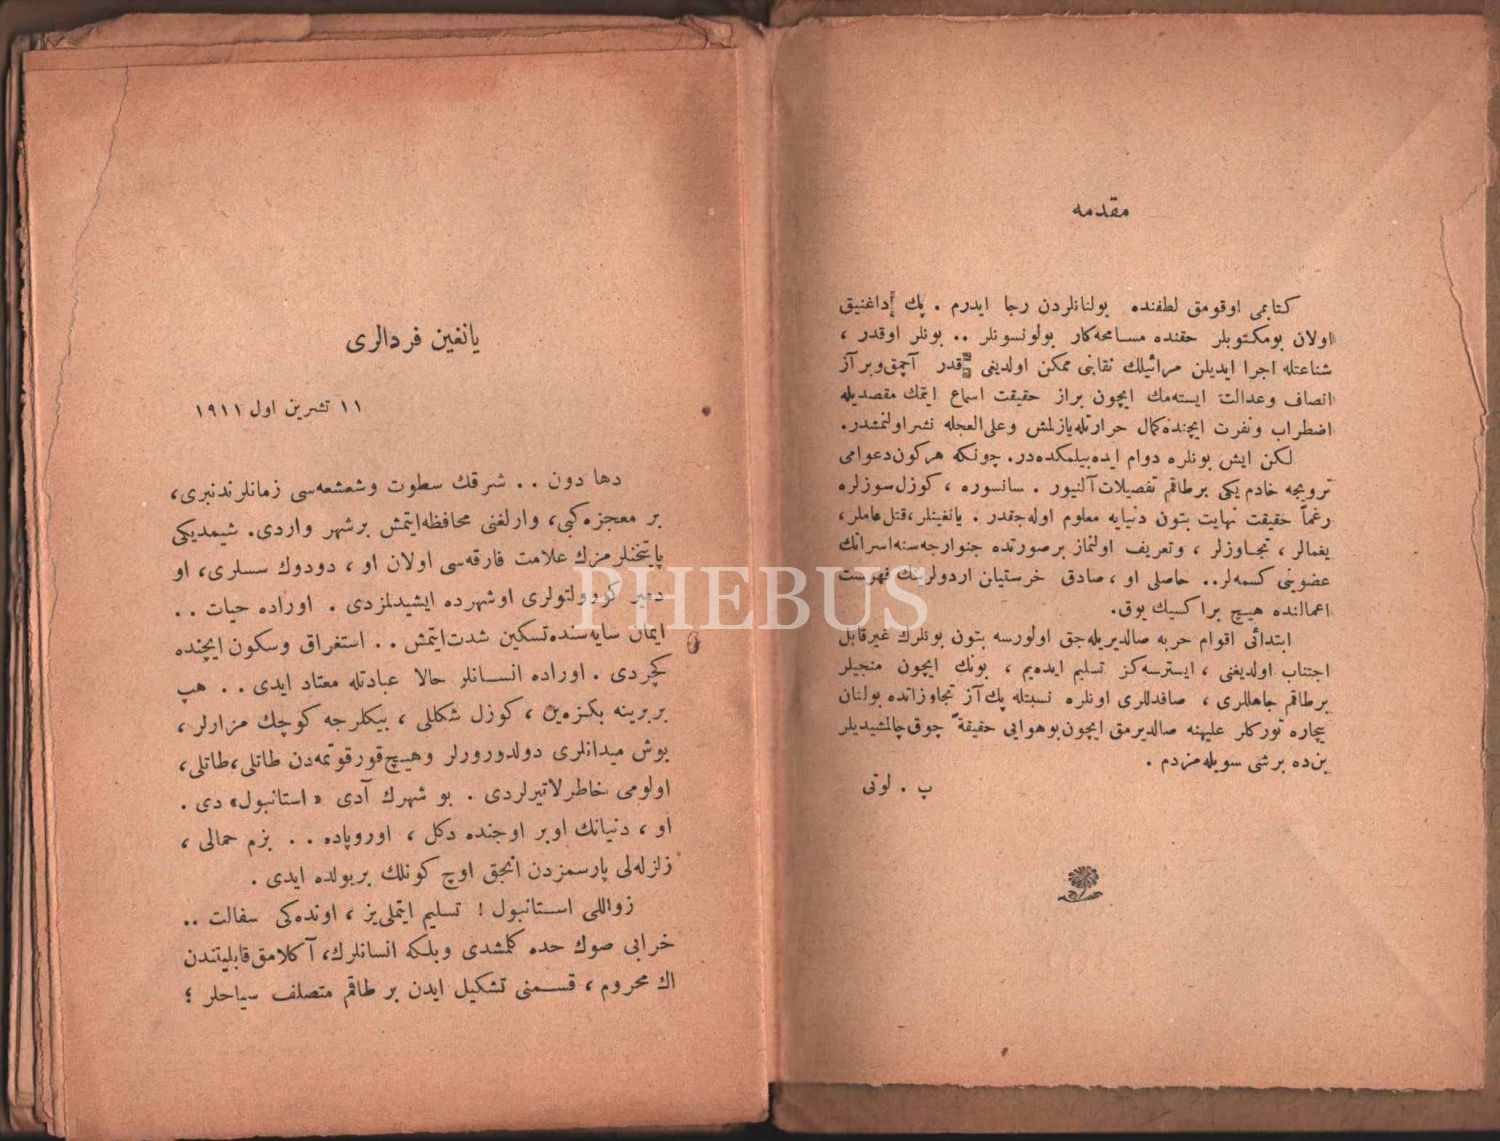 مقدمه
كتابمی اوقومق لطفنده بولنانلردن رجا ایدرم . پك أداغنیق
اولان بومكتوبلر حقنده مسامحه‌كار بولونسونلر .. بونلر اوقدر ،
شناعتله اجرا ایدیلن مرائیلك نقابنی ممكن اولدیغی قدر آچمق‌و برآز
انصاف وعدالت ایسته‌مك ایچون براز حقیقت اسماع ایتمك مقصدیله
اضطراب ونفرت ایچنده‌كمال حرارتله‌یازلمش وعلی‌العجله نشراولنمشدر.
لكن ایش بونلره دوام ایده‌بیلمكده‌در. چونكه هركون‌دعوامی
ترویجه خادم یكی برطاقم تفصیلات‌آلنیور . سانسوره ، كوزل‌سوزلره
رغماً حقیقت نهایت بتون دنیایه معلوم اوله‌جقدر . یانغینلر، قتل‌عاملر،
یغمالر ، تجاوزلر ، وتعریف اولنماز برصورتده جنوارجه‌سنه‌اسرانك
عضوینی كسمه‌لر.. حاصلی او ، صادق خرستیان اردولرینك فهرست
اعمالنده هیچ براكسیك یوق.
ابتدائی اقوام حربه صالدیریله‌جق اولورسه بتون بونلرك غیرقابل
اجتناب اولدیغنی ، ایسترسه‌كز تسلیم ایده‌یم ، بونك ایچون منجیلر
برطاقم جاهللری ، صافدللری اونلره نسبتله پك‌آز تجاوزاتده بولنان
بیچاره توركلر علیهنه صالدیرمق ایچون‌بوهوایی حقیقةً چوق‌چالمشیدیلر
بن‌ده برشی سویله‌مزدم .
پ . لوتی
یانغین فردالری
١١ تشرین اول ١٩١١
دها دون . . شرقك سطوت وشعشعه‌سی زمانلرندنبری،
بر معجزه‌كبی، وارلغنی محافظه‌ایتمش برشهر واردی. شیمدیكی
پایتختلرمزك علامت فارقه‌سی اولان او ، دودوك سسلری، او
دمیر كورولتولری اوشهرده ایشیدلمزدی . اوراده حیات . .
ایمان سایه‌سنده‌تسكین شدت‌ایتمش . . استغراق وسكون ایچنده
كچردی . اوراده انسانلر حالا عبادتله معتاد ایدی . . هپ
بربرینه بكزه‌ین ، كوزل شكللی ، بیكلرجه كوچك مزارلر ،
بوش میدانلری دولدورورلر وهیچ‌قورقوتمه‌دن طاتلی، طاتلی،
اولومی خاطرلاتیرلردی . بو شهرك آدی « استانبول» دی .
او ، دنیانك اوبر اوجنده دكل ، اوروپاده . . بزم حمالی ،
زلزله‌لی پارسمزدن انجق اوچ كونلك بریولده ایدی .
زواللی استانبول ! تسلیم ایتملی‌یز ، اونده‌كی سفالت ..
خرابی صوك حده كلمشدی وبلكه انسانلرك، آكلامق‌قابلیتندن
اك محروم ، قسمنی تشكیل ایدن بر طاقم متصلف سیاحلر ؛
PHEBUS